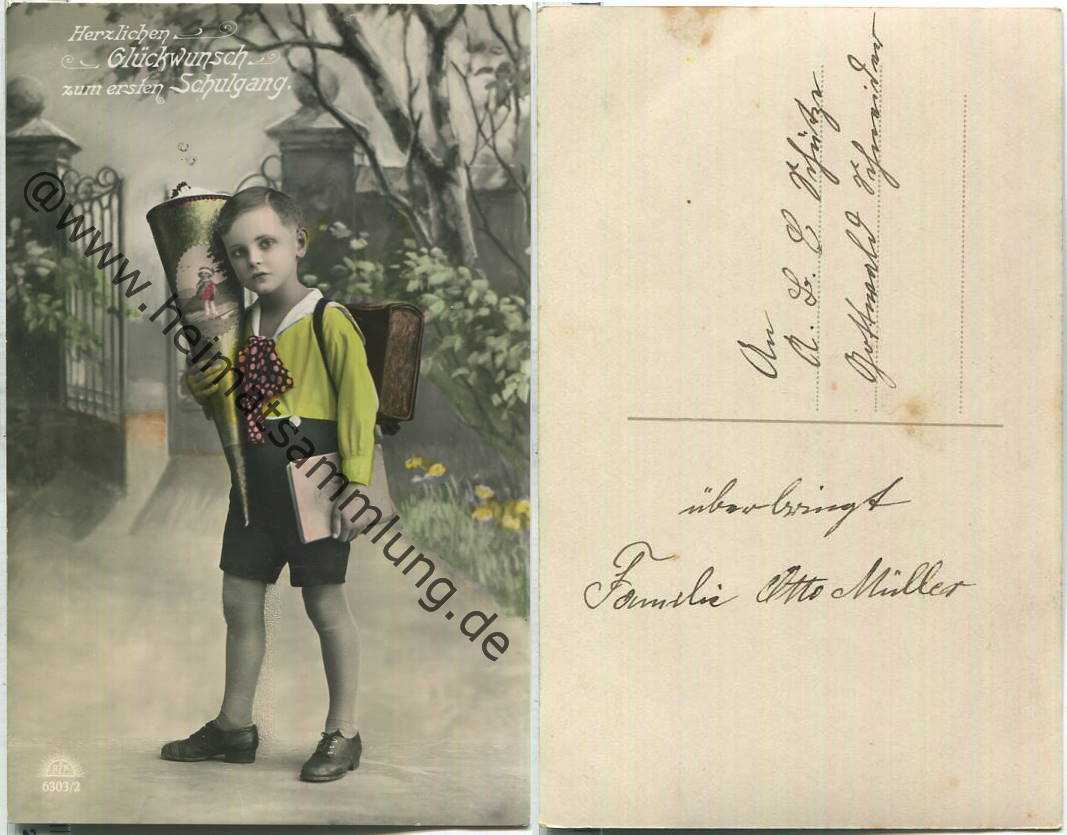 Herzlichen
Glückwunsch
zum ersten Schulgang.
@www.heimatsammlung.de
6303/2
An
A. B. C Schütze
Gottwald Schneider
überbringt
Familie Otto Müller